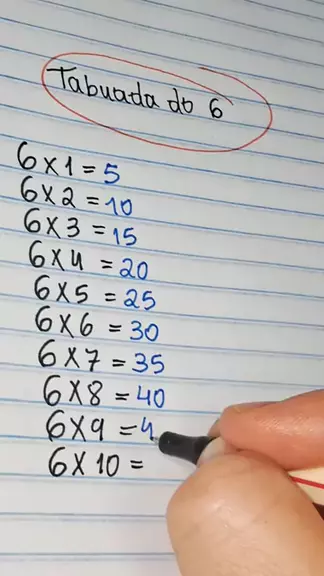 Tabuada do 6
6x1=5
6x2=10
6x3=15
6x4=20
6x5=25
6x6=30
6x7=35
6x8=40
6x9=4
6x10=